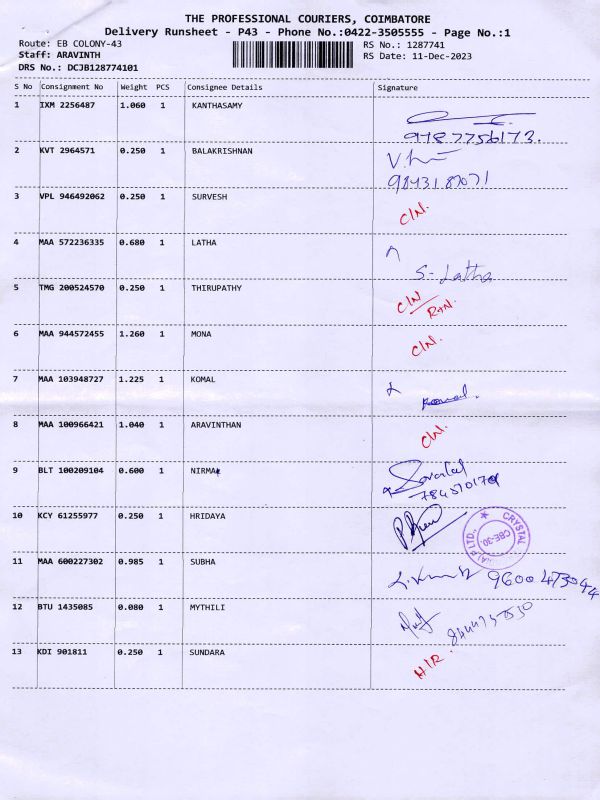 THE PROFESSIONAL COURIERS, COIMBATORE
Delivery Runsheet - P43 - Phone No.:0422-3505555 - Page No.:1
Route: EB COLONY-43 RS No.: 1287741
Staff: ARAVINTH RS Date: 11-Dec-2023
DRS No.: DCJB128774101
S No Consignment No Weight PCS Consignee Details Signature
1 IXM 2256487 1.060 1 KANTHASAMY
9487756173.
2 KVT 2964571 0.250 1 BALAKRISHNAN
3 VPL 946492062 0.250 1 SURVESH
C/N.
4 MAA 572236335 0.680 1 LATHA
S- Latha
5 TMG 200524570 0.250 1 THIRUPATHY
C/N
R+N.
6 MAA 944572455 1.260 1 MONA
C/N.
7 MAA 103948727 1.225 1 KOMAL
Komal.
8 MAA 100966421 1.040 1 ARAVINTHAN
C/N.
9 BLT 100209104 0.600 1 NIRMAL
10 KCY 61255977 0.250 1 HRIDAYA
CRYSTAL
CBE-30
P LTD.,
11 MAA 600227302 0.985 1 SUBHA
12 BTU 1435085 0.080 1 MYTHILI
13 KDI 901811 0.250 1 SUNDARA
H/R.